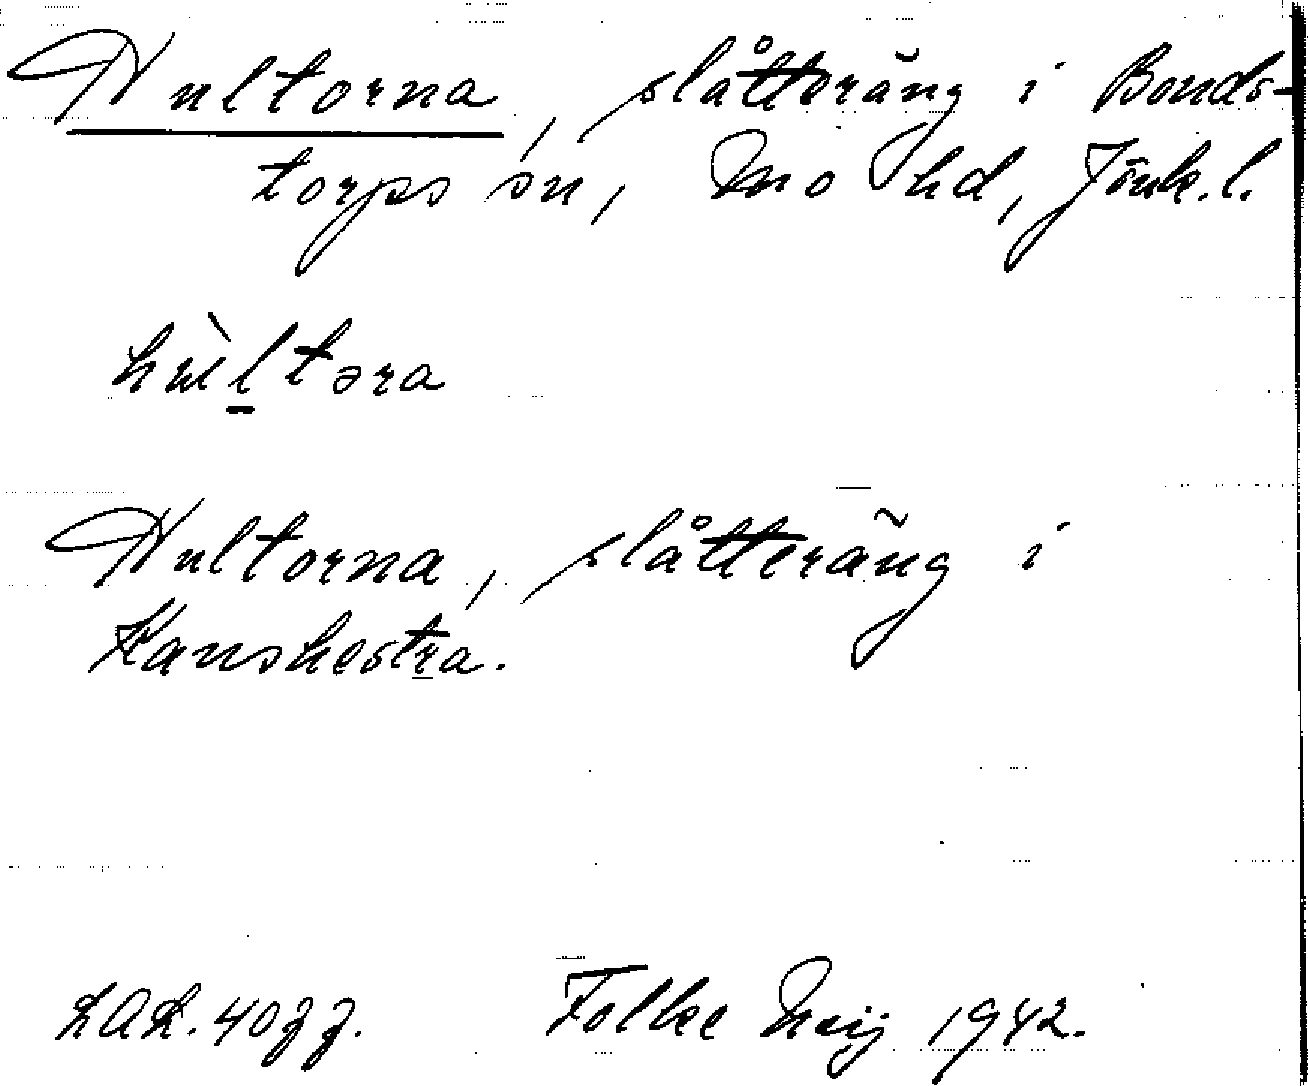 Hultorna, slåtteräng i Bonds-
torps sn, Mo hd, Jönk. l.
hùltəra
Hultorna, slåtteräng i
Kanshestra.
Folke Meij 1942.